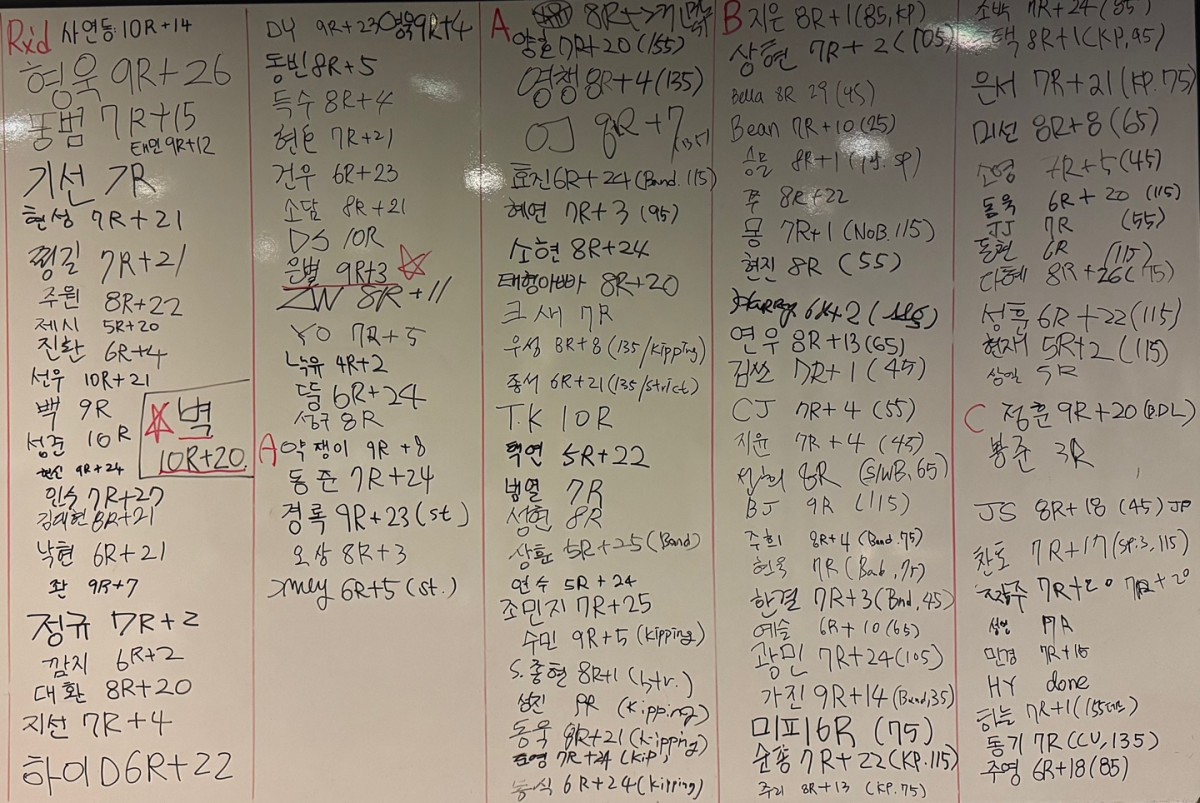 Rx'd 사연등 10R+14
형욱 9R+26
동범 7R+15
태민 9R+12
기선 7R
현성 7R+21
찡길 7R+21
주원 8R+22
제시 5R+20
진환 6R+4
선우 10R+21
백 9R
성준 10R
벽
10R+20
현신 9R+24
민수 7R+27
김대현 8R+21
낙현 6R+21
좌 9R+7
정규 7R+2
깜지 6R+2
대환 8R+20
지선 7R+4
하이D 6R+22
DY 9R+23 영욱 9R+4
동빈 8R+5
득수 8R+4
현호 7R+21
건우 6R+23
소담 8R+21
DS 10R
은별 9R+3
ZW 8R+11
YO 7R+5
녹유 4R+2
똘 6R+24
성규 8R
A 약쟁이 9R+8
동준 7R+24
경록 9R+23 (st)
오상 8R+3
6R+5 (st.)
A 8R+
양길 7R+20 (155)
영쟁 8R+4 (135)
OJ 8R+7 (135)
효진 6R+24 (Band.115)
혜연 7R+3 (95)
소현 8R+24
태형아빠 8R+20
크새 7R
우성 8R+8 (135/kipping)
종서 6R+21 (135/strict)
T.K 10R
택연 5R+22
범열 7R
성현 8R
상훈 5R+25 (Band)
연수 5R+24
조민지 7R+25
수민 9R+5 (kipping)
S.종현 8R+1 (str.)
성진 9R (Kipping)
동욱 8R+21 (kipping)
7R+24 (kip)
동식 6R+24 (kipping)
B 지은 8R+1 (85, KP)
상현 7R+2 (105)
Bella 8R 29 (45)
Bean 7R+10 (25)
8R+1
쭈 8R+22
몽 7R+1 (NoB.115)
현진 8R (55)
Harry 6R+2
연우 8R+13 (65)
검쓰 7R+1 (45)
CJ 7R+4 (55)
지윤 7R+4 (45)
8R (S/WB, 65)
BJ 9R (115)
주희 8R+4 (Band.75)
현욱 7R (Bab, 75)
한결 7R+3 (Bnd, 45)
예슬 6R+10 (65)
광민 7R+24 (105)
가진 9R+14 (Band,35)
미피 6R (75)
순종 7R+22 (KP.115)
주리 8R+13 (KP.75)
소박 7R+24 (85)
택 8R+1 (KP, 95)
은서 7R+21 (KP.75)
미선 8R+8 (65)
소영 7R+5 (45)
동욱 6R+20 (115)
JJ 7R (55)
동현 6R (115)
다혜 8R+26 (75)
성훈 6R+22 (115)
현재 5R+2 (115)
상열 5R
C 정훈 9R+20 (BDL)
봉준 3R
JS 8R+18 (45) JP
찬호 7R+17 (sp.3, 115)
7R+20 7R+20
성영
민경 7R+15
HY done
하늘 7R+1
동기 7R (CU, 135)
주영 6R+18 (85)